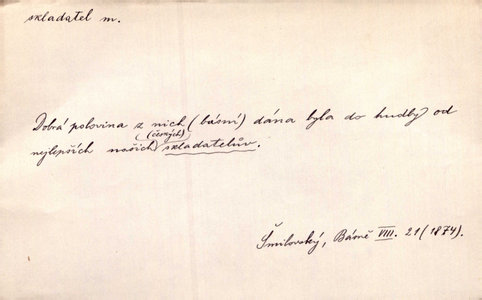 skladatel m.
Dobrá polovina z nich (básní) dána byla do hudby od
(českých)
nejlepších našich skladatelův.
Šmilovský, Básně VIII. 21 (1874).